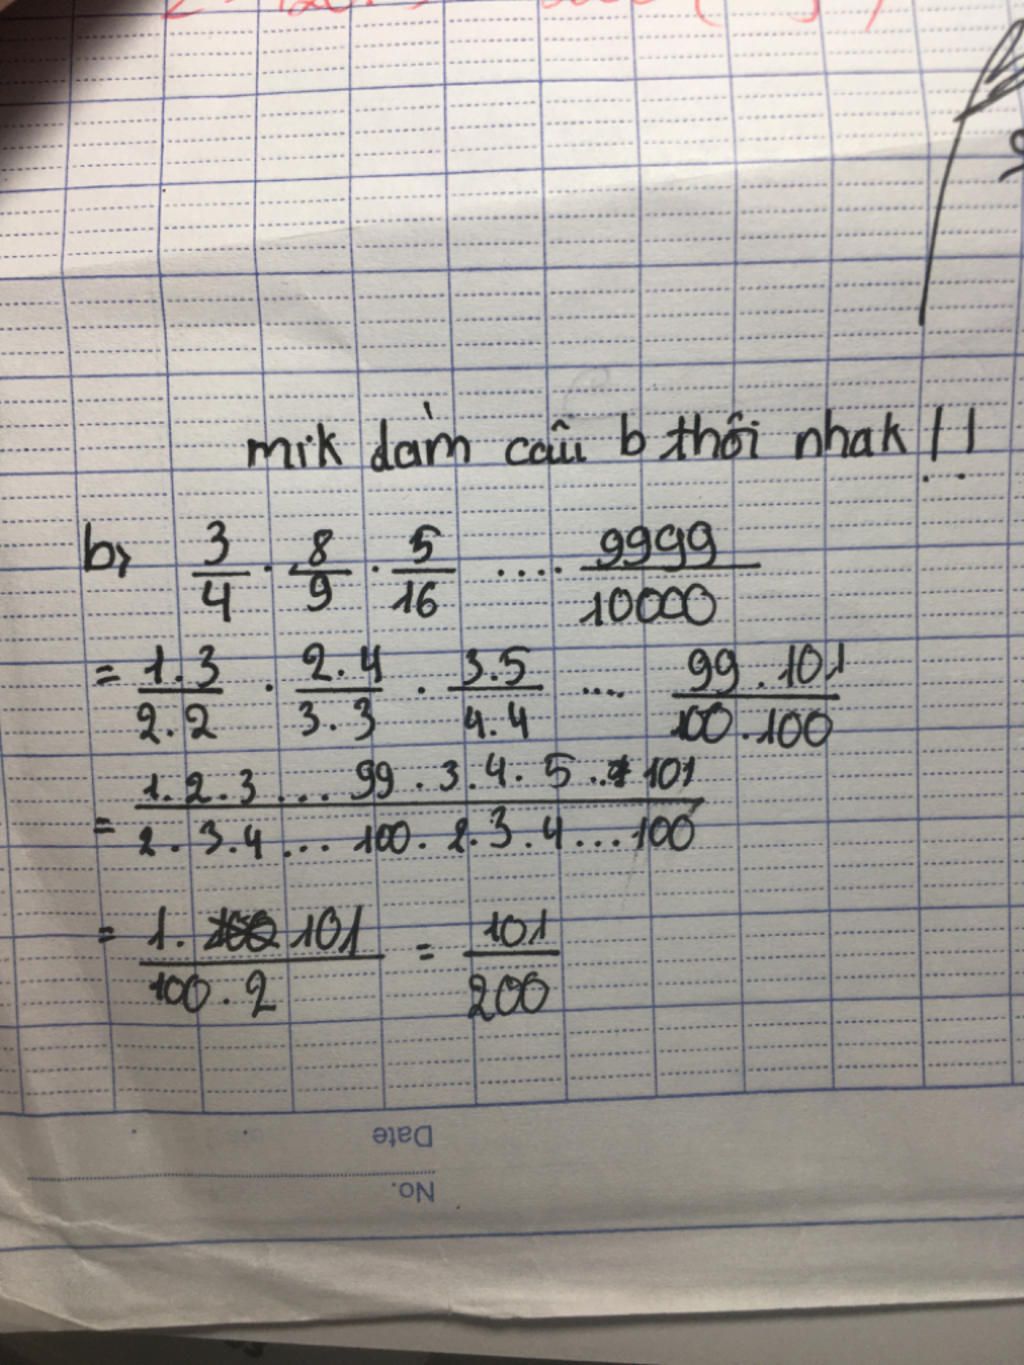 mik dám câu b thôi nhak !!
b, 3/4 . 8/9 . 5/16 .... 9999/10000
= 1.3/2.2 . 2.4/3.3 . 3.5/4.4 .... 99.101/100.100
= 1.2.3...99.3.4.5..101/2.3.4...100.2.3.4...100
= 1.101/100.2 = 101/200
Date
No.